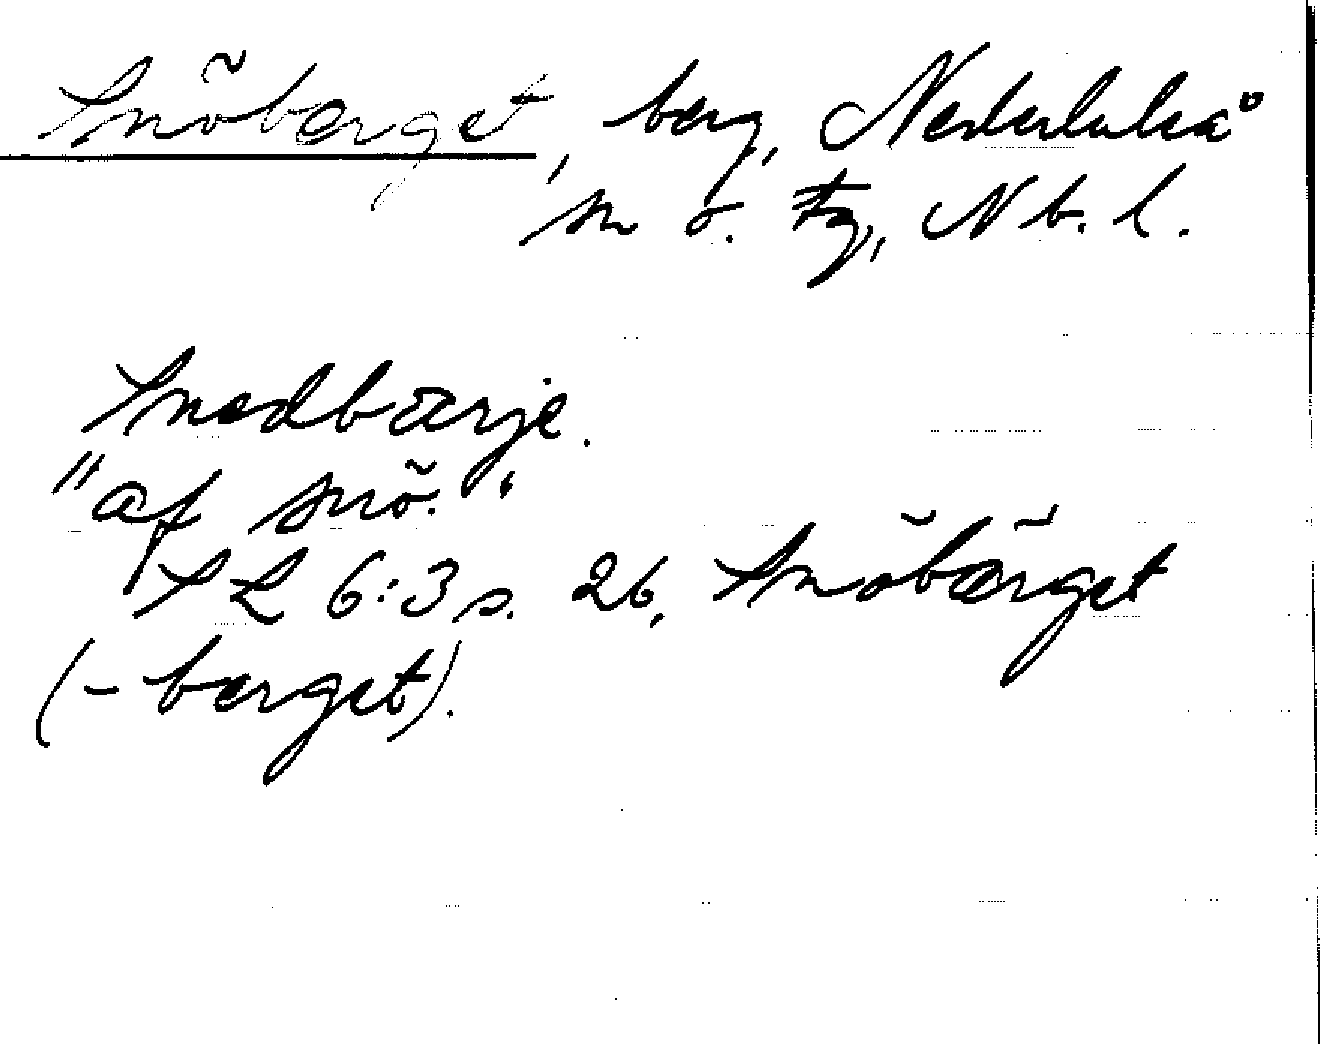 Snöberget, berg, Nederluleå
sn o. tg, Nb. l.
Snedbärje.
"af snö."
SL 6:3 s. 26, Snöbärget
(-berget).